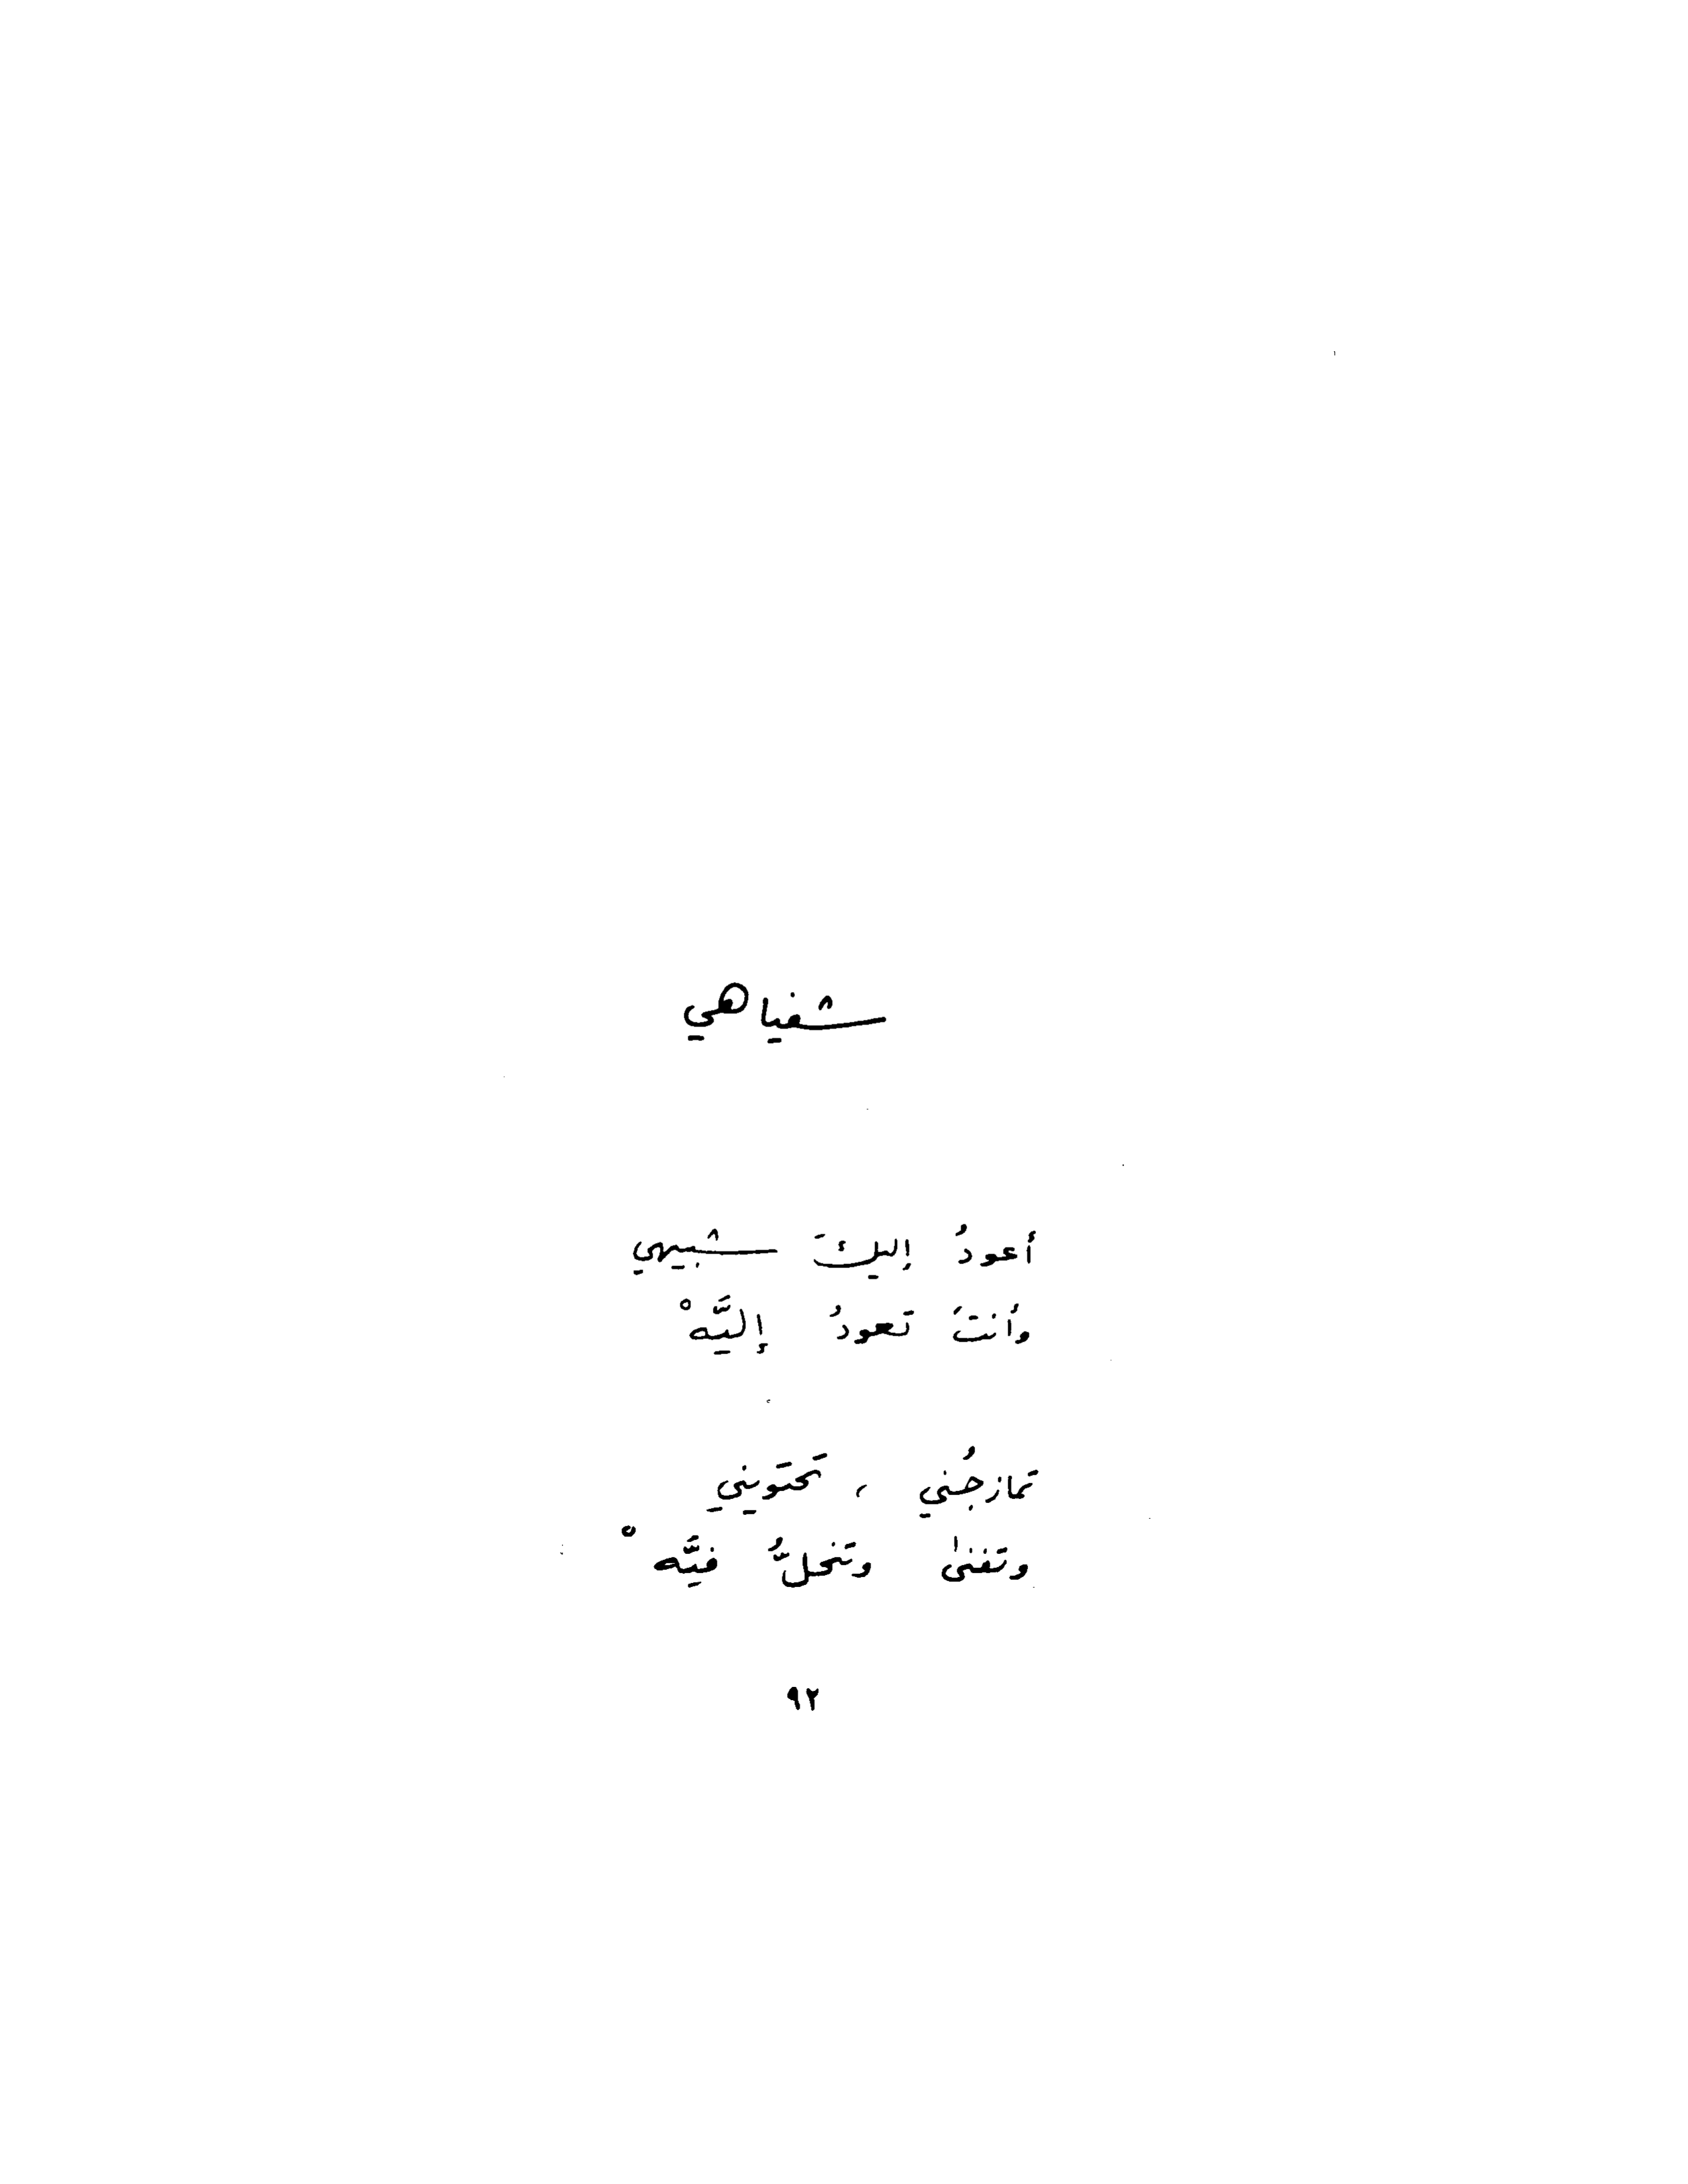 شفياهي
أعودُ إليكَ شبيهي
وأنتَ تعودُ إليَّهْ
تمازجُني ، تحتويني
وتفنىٰ وتحلُّ فيَّهْ
٩٢